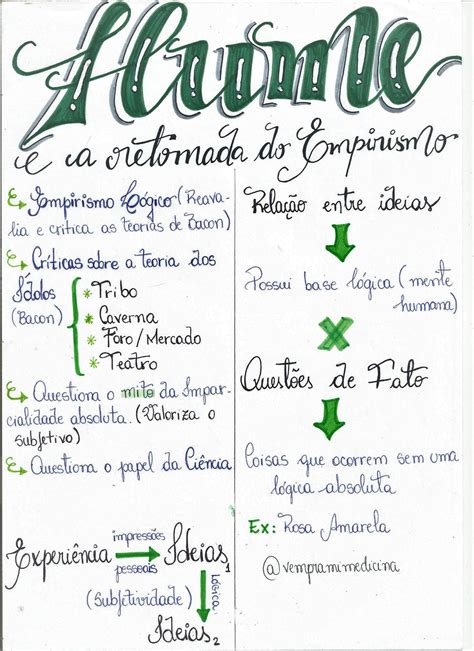 Hume
e a retomada do Empirismo
Empirismo Lógico (Reava-
lia e critica as teorias de Bacon)
Críticas sobre a teoria dos
Ídolos
(Bacon)
* Tribo
* Caverna
* Foro/Mercado
* Teatro
Questiona o mito da Impar-
cialidade absoluta. (Valoriza o
subjetivo)
Questiona o papel da Ciência
Experiência → Ideias1
impressões
pessoais
(Subjetividade)
lógica
Ideias2
Relação entre ideias
Possui base lógica (mente
humana)
Questões de Fato
Coisas que ocorrem sem uma
lógica absoluta
Ex: Rosa Amarela
@vempramimedicina